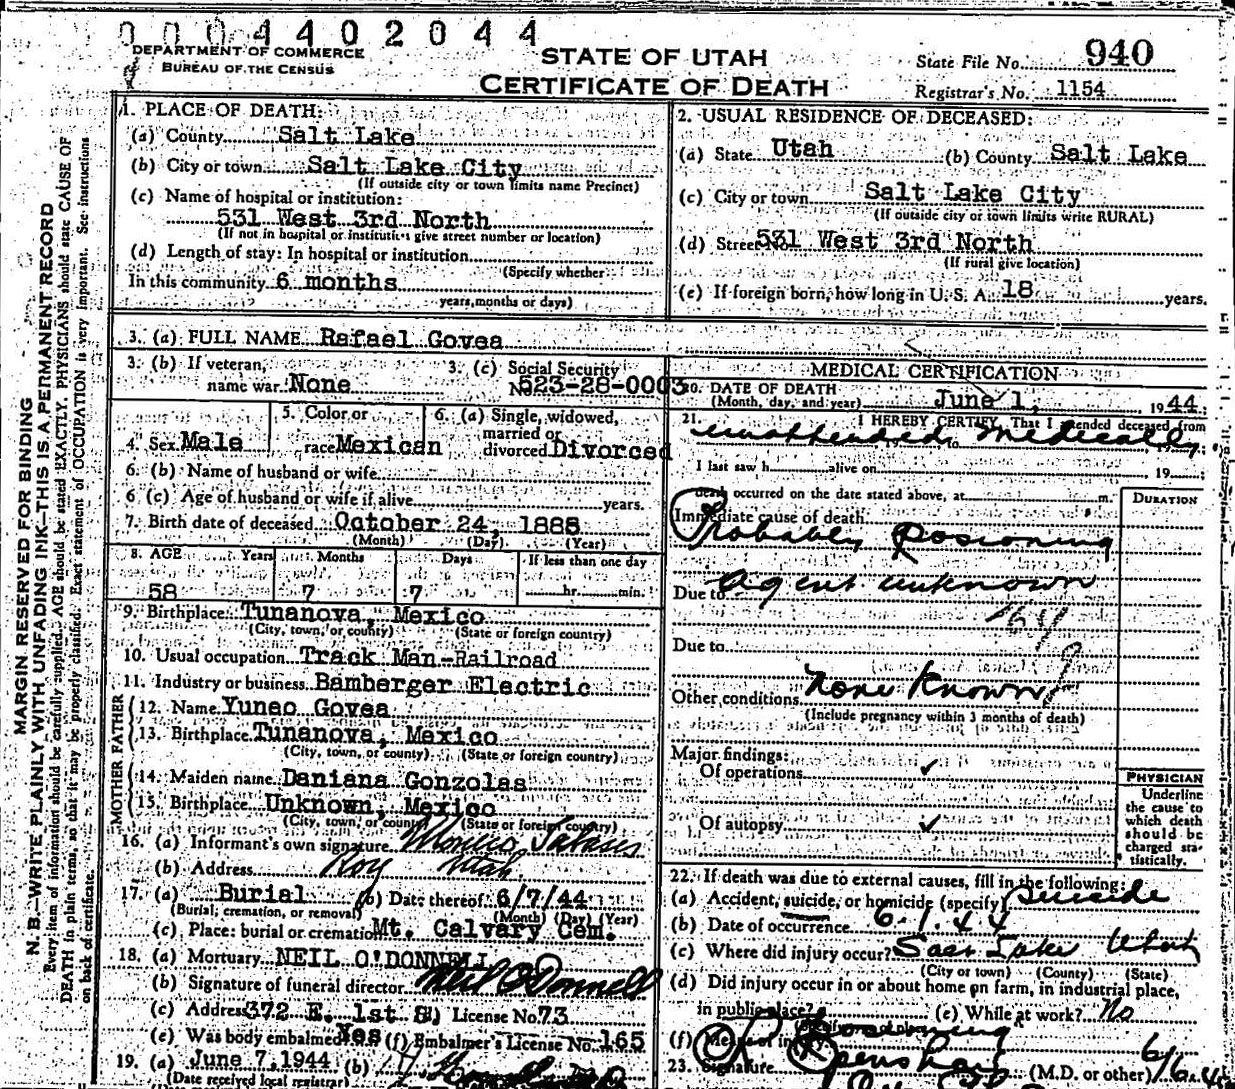 0 0 0 4 4 0 2 0 4 4
DEPARTMENT OF COMMERCE
BUREAU OF THE CENSUS
STATE OF UTAH
CERTIFICATE OF DEATH
State File No. 940
Registrar's No. 1154
MARGIN RESERVED FOR BINDING
N. B.—WRITE PLAINLY WITH UNFADING INK—THIS IS A PERMANENT RECORD
Every item of information should be carefully supplied. AGE should be stated EXACTLY. PHYSICIANS should state CAUSE OF
DEATH in plain terms, so that it may be properly classified. Exact statement of OCCUPATION is very important. See instructions
on back of certificate.
1. PLACE OF DEATH:
(a) County Salt Lake
(b) City or town Salt Lake City
(If outside city or town limits name Precinct)
(c) Name of hospital or institution:
531 West 3rd North
(If not in hospital or institution give street number or location)
(d) Length of stay: In hospital or institution
(Specify whether
In this community 6 months
years, months or days)
2. USUAL RESIDENCE OF DECEASED:
(a) State Utah (b) County Salt Lake
(c) City or town Salt Lake City
(If outside city or town limits write RURAL)
(d) Street 531 West 3rd North
(If rural give location)
(e) If foreign born, how long in U. S. A. 18 years.
3. (a) FULL NAME Rafael Govea
3. (b) If veteran, name war None
3. (c) Social Security No. 523-28-0003
4. Sex Male
5. Color or race Mexican
6. (a) Single, widowed, married or divorced Divorced
6. (b) Name of husband or wife
6 (c) Age of husband or wife if alive years.
7. Birth date of deceased October 24, 1885
(Month) (Day) (Year)
8. AGE Years Months Days If less than one day
58 7 7 hr. min.
9. Birthplace Tunanova, Mexico
(City, town, or county) (State or foreign country)
10. Usual occupation Track Man-Railroad
11. Industry or business Bamberger Electric
FATHER
12. Name Yuneo Govea
13. Birthplace Tunanova, Mexico
(City, town, or county) (State or foreign country)
MOTHER
14. Maiden name Daniana Gonzolas
15. Birthplace Unknown, Mexico
(City, town, or county) (State or foreign country)
16. (a) Informant's own signature
(b) Address Roy Utah
17. (a) Burial (b) Date thereof 6/7/44
(Burial, cremation, or removal) (Month) (Day) (Year)
(c) Place: burial or cremation Mt. Calvary Cem.
18. (a) Mortuary NEIL O'DONNELL
(b) Signature of funeral director Neil O'Donnell
(c) Address 372 E. 1st S. License No. 73
(e) Was body embalmed Yes (f) Embalmer's License No. 165
19. (a) June 7, 1944 (b)
(Date received local registrar)
MEDICAL CERTIFICATION
20. DATE OF DEATH
(Month, day, and year) June 1, 1944
21. I HEREBY CERTIFY, That I attended deceased from
unattended medically
to 19
I last saw h alive on 19
Death occurred on the date stated above, at m.
DURATION
Immediate cause of death
Probably Posioning
Due to agent unknown
164
Due to
Other conditions None Known
(Include pregnancy within 3 months of death)
Major findings:
Of operations ✓
Of autopsy ✓
PHYSICIAN
Underline
the cause to
which death
should be
charged sta-
tistically.
22. If death was due to external causes, fill in the following:
(a) Accident, suicide, or homicide (specify) Suicide
(b) Date of occurrence 6-1-44
(c) Where did injury occur? Salt Lake Utah
(City or town) (County) (State)
(d) Did injury occur in or about home on farm, in industrial place,
in public place? (e) While at work? No
(f) Means of injury Posioning
23. Signature (M.D. or other)